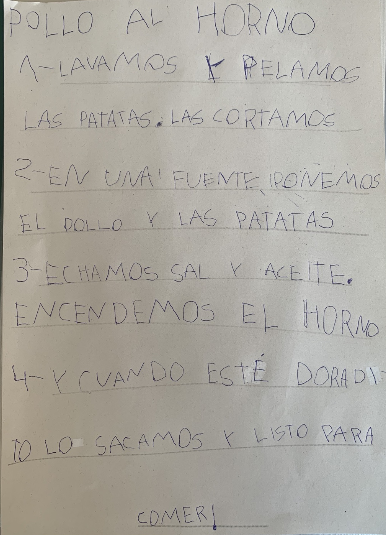 POLLO AL HORNO
1-LAVAMOS Y PELAMOS
LAS PATATAS. LAS CORTAMOS
2-EN UNA FUENTE, PONEMOS
EL POLLO Y LAS PATATAS
3-ECHAMOS SAL Y ACEITE.
ENCENDEMOS EL HORNO
4-Y CUANDO ESTÉ DORADI-
TO LO SACAMOS Y LISTO PARA
COMER!